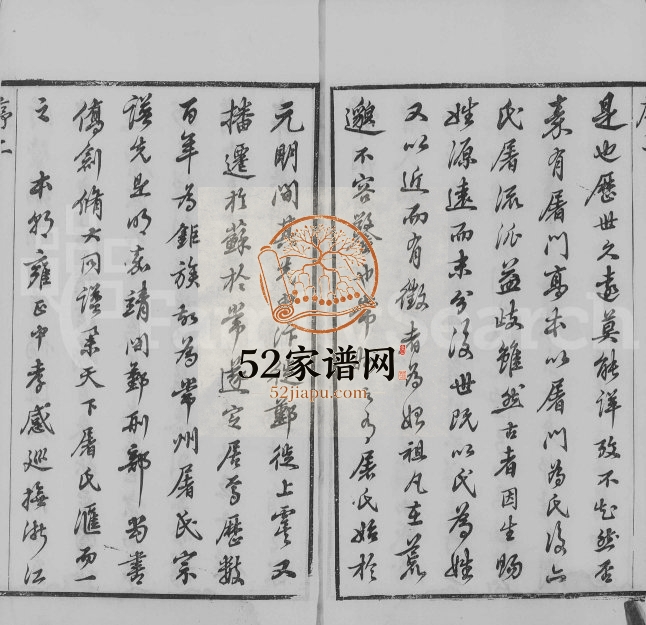 是也歷世久遠莫能詳攷不知然否
秦有屠門高本以屠門為氏後亦
氏屠流派益歧雖然古者因生賜
姓源遠而未分後世既以氏為姓
又以近而有徵者為始祖凡在荒
邈不容鑿也常州之有屠氏始於
元明間其先由汴徙鄞徙上虞又
播遷於蘇於常遂定居焉歷數
百年為鉅族故為常州屠氏宗
譜先是明嘉靖間鄞刑部尚書
僑創脩大同譜系天下屠氏滙而一
之 本朝雍正中孝感巡撫浙江
序二
52家谱网
52jiapu.com
FamilySearch